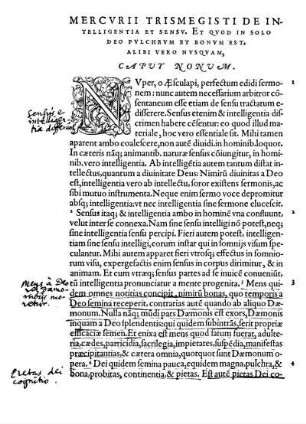 MERCVRII TRISMEGISTI DE IN-
TELLIGENTIA ET SENSV. ET QVOD IN SOLO
DEO PVLCHRVM ET BONVM EST,
ALIBI VERO NVSQVAM,
CAPVT NONVM.
NVper, o Æsculapi, perfectum edidi sermo-
nem: nunc autem necessarium arbitror cō-
sentaneum esse etiam de sensu tractatum e-
disserere. Sensus etenim & intelligentia diffe-
rimen habere censetur: eo quod illud ma-
teriale, hoc vero essentiale sit. Mihi tamen
aparent ambo coalescere, non autē diuidi. in hominib. loquor.
In cæteris nāq; animantib. naturæ sensus cōiungitur, in homi-
nib. vero intelligentia. Ab intelligētia autem tantum distat in-
tellectus, quantum a diuinitate Deus: Nimirū diuinitas a Deo
est, intelligentia vero ab intellectu, soror existens sermonis, ac
sibi mutuo instrumenta. Neque enim sermo voce depromitur
absq; intelligentia: vt nec intelligentia sine sermone elucescit.
Sensus itaq; & intelligentia ambo in hominē vna confluunt,
velut inter se connexa. Nam sine sensu intelligi nō potest, neq;
sine intelligentia sensu percipi. Fieri autem potest, intelligen-
tiam sine sensu intelligi, eorum instar qui in somnijs visum spe-
culantur. Mihi autem apparet fieri vtrosq; effectus in somnio-
rum visu, expergefactis enim sensus in corpus dirimitur, & in
animam. Et cum vtræq; sensus partes ad se inuicē consenserint,
tū intelligentiam pronunciari a mente progenitā. Mens qui-
dem omnes notitias concipit, nimirū bonas, quo temporis a
Deo semina receperit. contrarias autē quando ab aliquo Dæ-
monum. Nulla nāq; mūdi pars Dæmonis est exors, Dæmonis
inquam a Deo splendentis: qui quidem subintrās, serit propriæ
efficaciæ semen. Et enixa est mens quod satum fuerat, adulte-
ria, cædes, parricidia, sacrilegia, impietates, suspēdia, manifestas
præcipitantias, & cætera omnia, quotquot sunt Dæmonum o-
pera. Dei quidem semina pauca, equidem magna, pulchra, &
bona, probitas, continentia, & pietas. Est autē pietas Dei co-
Sensus et
Mens à Deo
Pietas dei
cognitio.